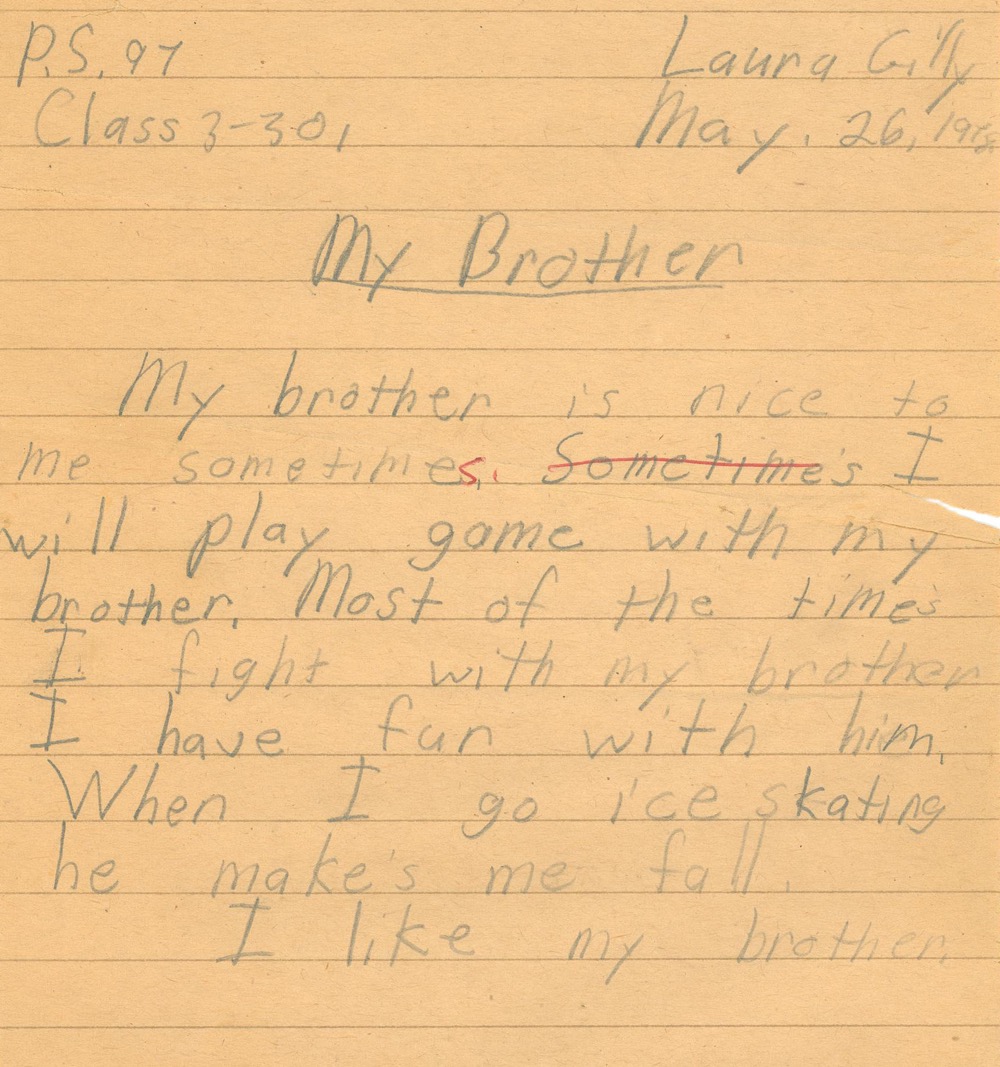 P.S. 97 Laura Gilly
Class 3-301 May. 26,
My Brother
My brother is nice to
me sometimes. Sometime's I
will play game with my
brother. Most of the time's
I fight with my brother
I have fun with him.
When I go ice skating
he make's me fall.
I like my brother.